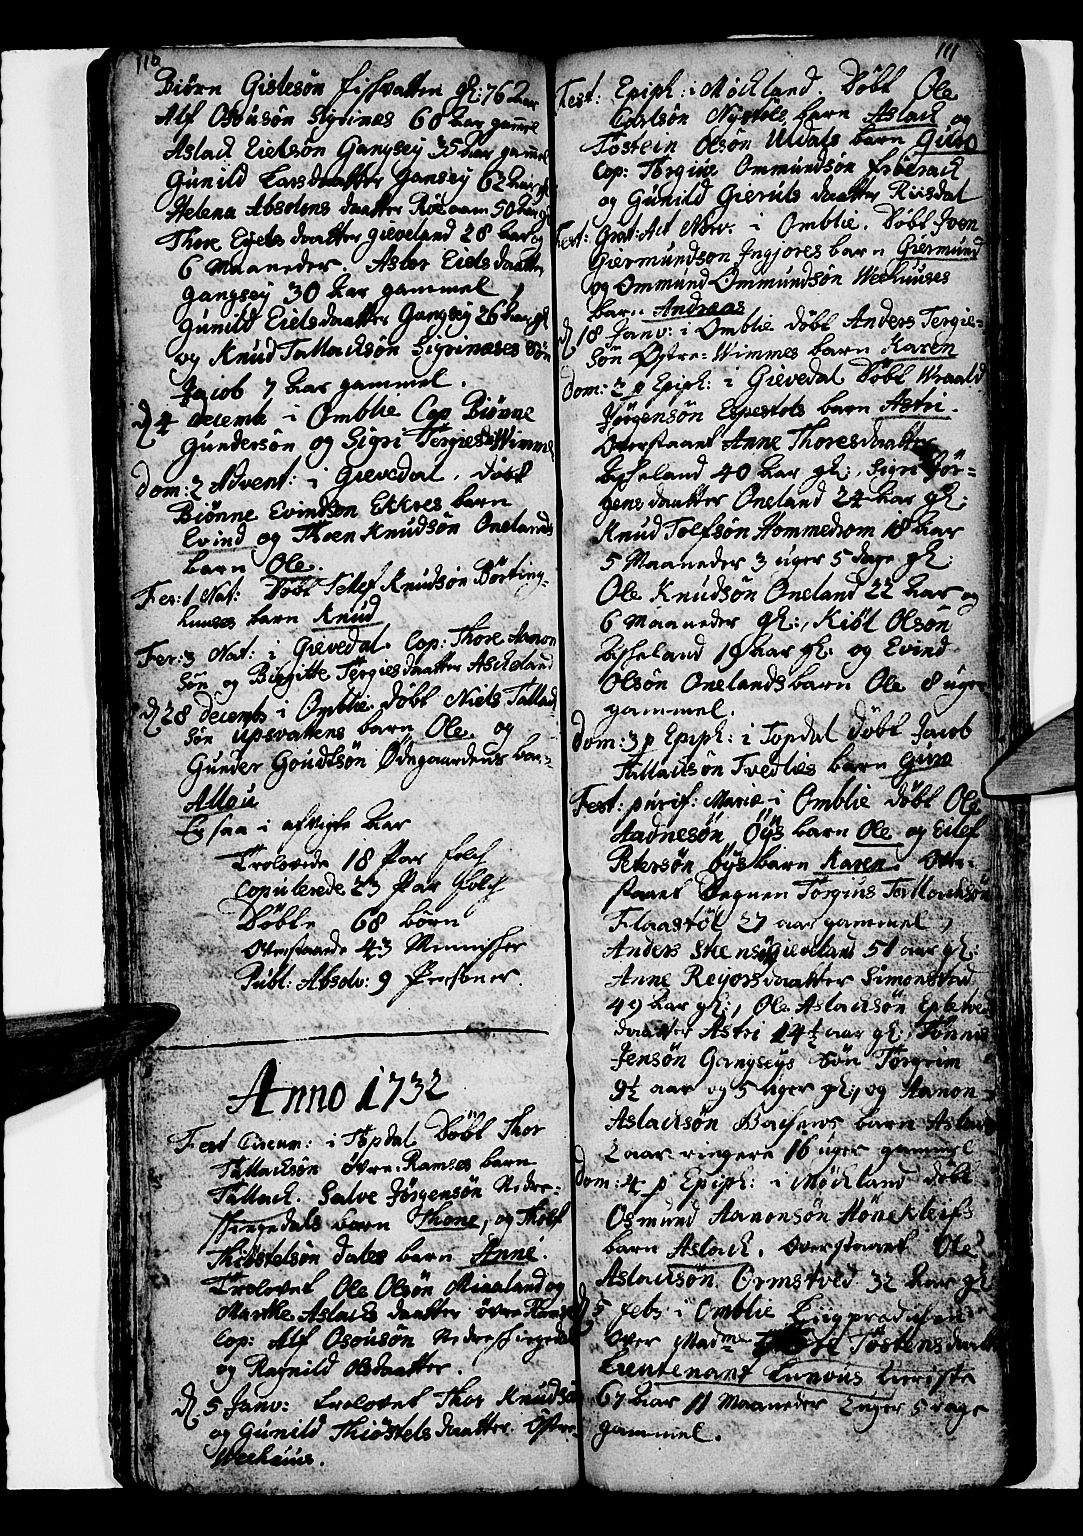 110
Biørn Gislesøn Fishvatten gl: 76 Aar
Alf Osousøn Sigrinæs 60 Aar gammel
Aslack Eielsøn Gangsey 35 Aar gammel
Gunild Larsdaatter Gansey 62 Aar gl
Helena Absolons daatter 50 Aar gl
Thore Eyels daatter Gieveland 28 Aar og
6 Maaneder. Eielsdaatter
Gangsey 30 Aar gammel,
Gunild Eielsdaatter Gangsey 26 Aar gl
og Knud Tallachsøn Sigrinæses Søn
Jacob 7 Aar gammel.
d 4 decemb i Omblie Cop Biønne
Gundersøn og Sigri Tergiesd: Wimme
Dom: 2 Advent: i Gievedal. Døbt
Biønne Evindsøn Ettres barn
Evind og Thoen Knudsøn Onelands
barn Ole.
Fer: 1 Nat: Døbt Tellef Knudsøn Børting-
huuses barn Knud
Fer: 3 Nat: i Gievedal. Cop: Thore Aanon
Søn og Birgitte Tergiesdaatter Askeland
d 28 decemb i Omblie døbt Niels Tallach
Søn Upsvattens barn Ole. og
Gunder Goudtsøn Ødegaardens bar-
Allou
Er saa i afvigte Aar
Trolovede 18 Par folch
Copulerede 23 Par folch
Døbte 68 børn
Overstaaede 43 Mennisher
Publ: Absolv: 9 Persohner.
Anno 1732
Fest Circum: i Topdal Døbt Thor
Tallachsøn Øvre-Ramses barn
Tallack. Salve Jørgensøn Nedre-
barn Thone, og Tholf
Thiøstelsøn dales barn Anne.
Trolovet Ole Olsøn Miaaland og
Marthe Aslachs daatter Øvre
Cop: Alf Osousøn Nedre
og Ragnild Olsdaatter.
d 5 Janv: trolovet Thor Knudsøn
og Gunild Thiøstels daatter Østre-
Weehuus.
111
Fest: Epiph: i Møckland. Døbt Ole
Carlsøn Nystøls barn Aslach og
Tostein Olsøn Uldals barn Guro
Cop: Tergius Ommundsøn
og Gunild Gieruls daatter Riisdal
Fest: Grat: Act Norv. i Omblie. Døbt Iven
Giermundsøn Ingjores barn Giermund
og Ommund Ommundsøn Weehuuses
barn Andreas
d 18 Janv: i Omblie døbt Anders Tergie-
Søn Østre-Wimmes barn Karen
Dom: 2 p Epiph: i Gievedal Døbt Wraald
Jørgensøn Espestøls barn Astri.
Overstaaet Anne Thoresdaatter
Askeland 40 Aar gl:, Sigri Jør-
gensdaatter Oneland 24 Aar gl:
Knud Tolfsøn Hommedrom 18 Aar
5 Maaneder 3 uger 5 dage gl:
Ole Knudsøn Oneland 22 Aar og
6 Maaneder gl:, Kiøl Olsøn
Askeland 1 Aar gl: og Evind
Olsøn Onelands barn Ole 8 uger
gammel.
Dom: 3 p Epiph: i Topdal døbt Jacob
Tallachsøn Tvedtes barn Guro
Fest: purif: Mariæ i Omblie døbt Ole
Aadnesøn Øys barn Ole og Eilef
Petersøn Øys barn Karen. Over-
staaet Degnen Torgius Tallachsøn
Flaastøl 27 aar gammel,
Anders Gieveland 51 aar gl:
Anne Reyersdaatter Simonsted
49 Aar gl:, Ole Aslachsøn
daatter Astri 14½ aar gl:, Tønnes
Jensøn Gangseys Søn Torgrim
9½ aar og 5 uger gl:, og Aanon
Aslachsøn barn Aslack
2 aar ringere 16 uger gammel
Dom: 4 p Epiph: i Møckland døbt
Osmund Aanonsøn Hønekleifs
barn Aslach. Overstaaet Ole
Aslachsøn Ormstved 32 Aar gl
d 5 febr i Omblie Liigprædichen
over Madme Tostensdaatter
Lieutenant 
67 Aar 11 Maaneder 2 uger 5 dage
gammel.